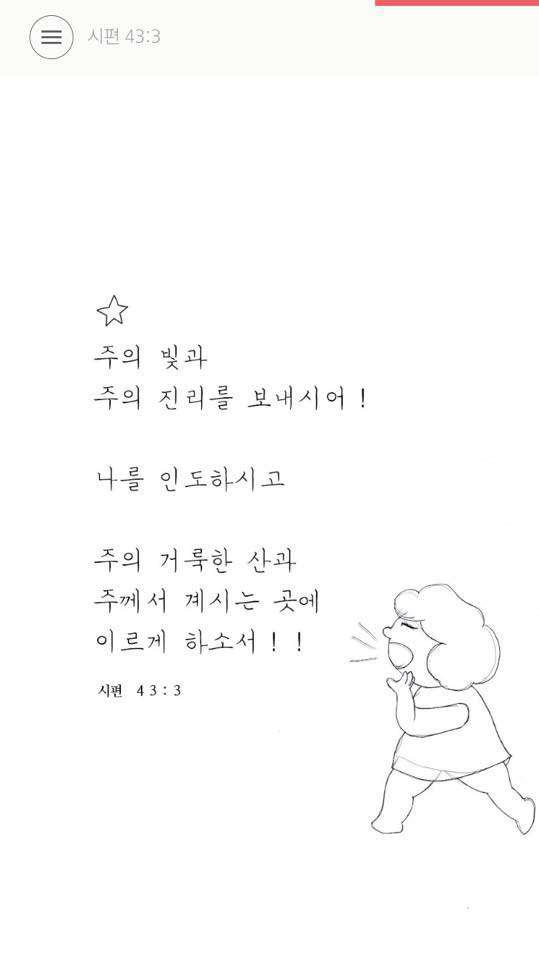 시편 43:3
주의 빛과
주의 진리를 보내시어 !
나를 인도하시고
주의 거룩한 산과
주께서 계시는 곳에
이르게 하소서 ! !
시편 43:3